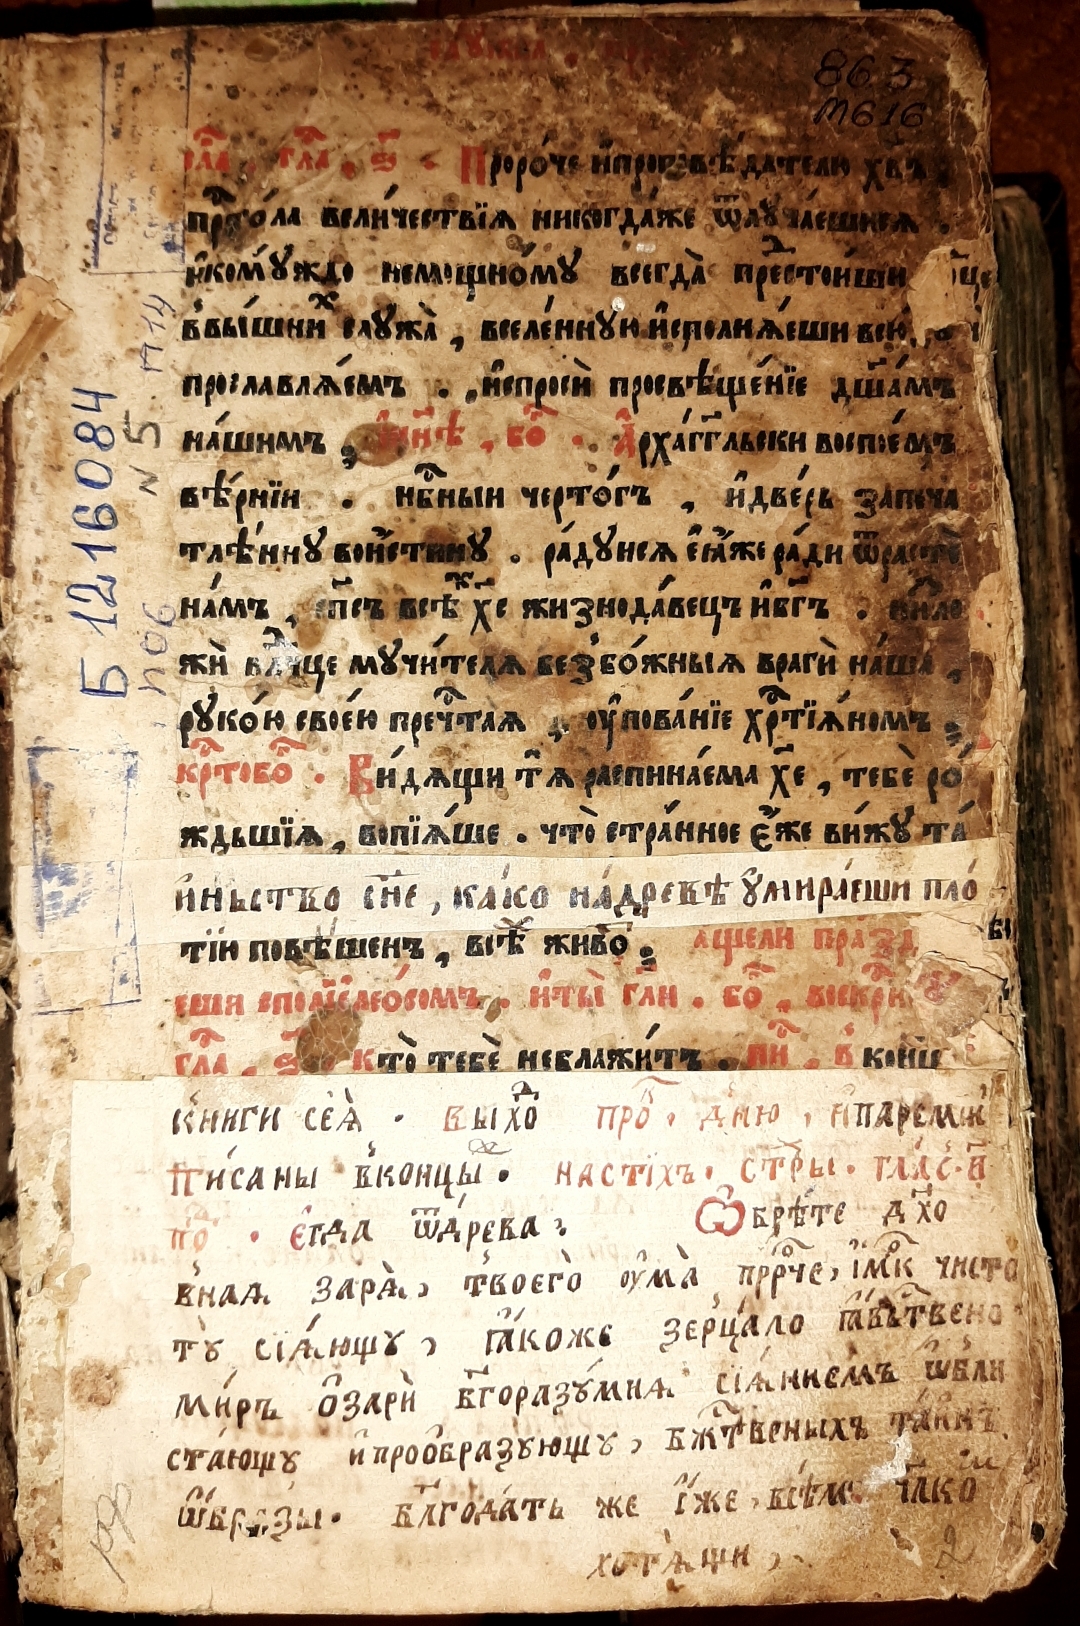 863
М616
гла҃, гл҃а, ѕ҃. Проро́че ѝпроповѣ́дателю хв҃ъ,
прⷭ҇то́ла вели́чествїѧ никогда́же ѿлуча́ешисѧ.
ѝкому́ждо немощно́му всегда̀ предстои́ши
ввы́шнихъ служа̀, вселе́нную ѝсполнѧ́еши всю,
прославлѧ́емъ. ѝспросѝ просвѣще́нїе дш҃а́мъ
на́шимъ, и҆ нн҃ѣ, бо҃. А҆рха́гг҃льски воспое́мъ
вѣ́рнїи. нб҇ⷭныи черто́гъ, ѝдве́рь запеча
тлѣ́нну вои́стину. ра́дуисѧ е҆ѧ́же ра́ди ѿрастѐ
на́мъ, сп҃съ всѣⷯ х҃е жизнода́вецъ ѝбг҃ъ. низло
жѝ влⷣчце мучи́телѧ безбо́жныѧ врагѝ на́ша,
руко́ю свое́ю пречⷭ҇таѧ, оу҆пова́нїе хрⷭ҇тїѧ́номъ,
крⷭ҇тобо҃. Ви́дѧщи тѧ̀ распина́ема х҃е, тебѐ ро́
ждьшїѧ, вопїѧ́ше. что̀ стра́нное е҆́же ви́жу та́
и҆ньство сн҃е, ка́ко на́древѣ оу҆мира́еши пло́
тїю повѣ́шенъ, всѣⷯ живоⷮ. а҆щели пра́зд
еши сполїелео́сомъ. ѝты̀ гл҃и. бо҃, воскрⷭ҇
гл҃а, ѕ҃. Кто̀ тебѐ неблажи́тъ. пи҃, в концѐ
кни́ги сеѧ̀. выхоⷣ про҃. дню, ѝпаремїи
пи́саны вконцы̀. настїхъ. стр҃ы. гла́с. и҃
поⷣ. е҆гда ѿдрева. Ѡ҆брѣ́те дх҃о
внаѧ зарѧ̀, твоего̀ оу҆ма̀ прⷪ҇рче, ꙗ҆́кⷪ чисто
тꙋ̀ сїѧ́ющу, ꙗ҆́коже зерца́ло ꙗ҆́вьствено
ми́ръ ѻ҆зарѝ бг҃оразу́мнѧ сїѧ́нїемъ ѡ҆бли
ста́ющу ѝпроѻ҆бразу́ющу, бжⷭ҇твеных̾ъ та́инъ
ѡ҆́бразы. бл҃года́ть же ꙗ҆́же всѣ́мъ чл҃ко
хотѧщи,
2
Б 1216084
N 5